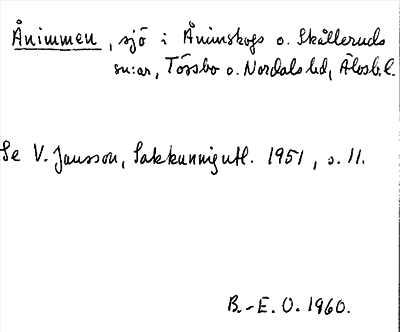 Ånimmen, sjö i Ånimskogs o. Skålleruds
sn:ar, Tössbo o. Nordals hd, Älvsb.l.
Se V. Jansson, Sakkunnigutl. 1951, s. 11.
B.-E. O. 1960.